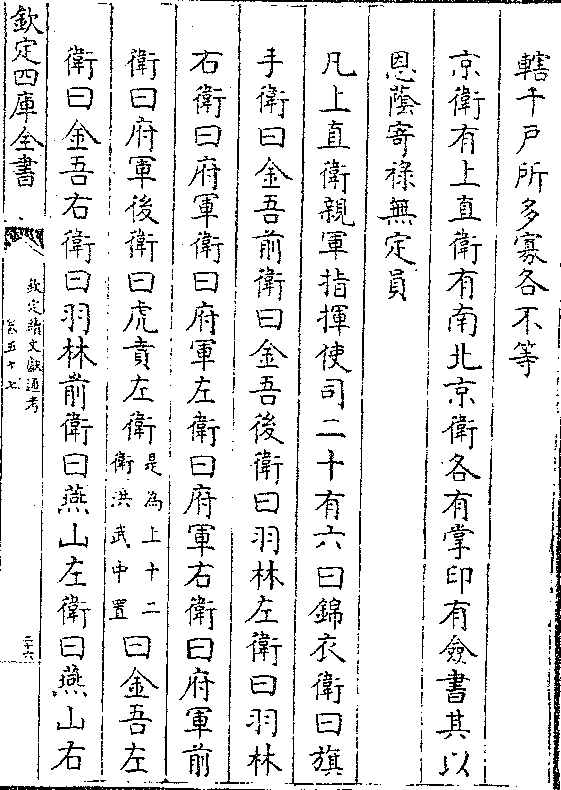 轄千戸所多寡各不等
京衛有上直衛有南北京衛各有掌印有僉書其以
恩蔭寄祿無定員
凡上直衛親軍指揮使司二十有六曰錦衣衛曰旗
手衛曰金吾前衛曰金吾後衛曰羽林左衛曰羽林
右衛曰府軍衛曰府軍左衛曰府軍右衛曰府軍前
衛曰府軍後衛曰虎賁左衛是為上十二衛洪武中置曰金吾左
衛曰金吾右衛曰羽林前衛曰燕山左衛曰燕山右
欽定四庫全書
欽定續文獻通考
卷五十七
二十六